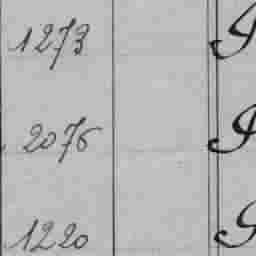 1273
2076
1220